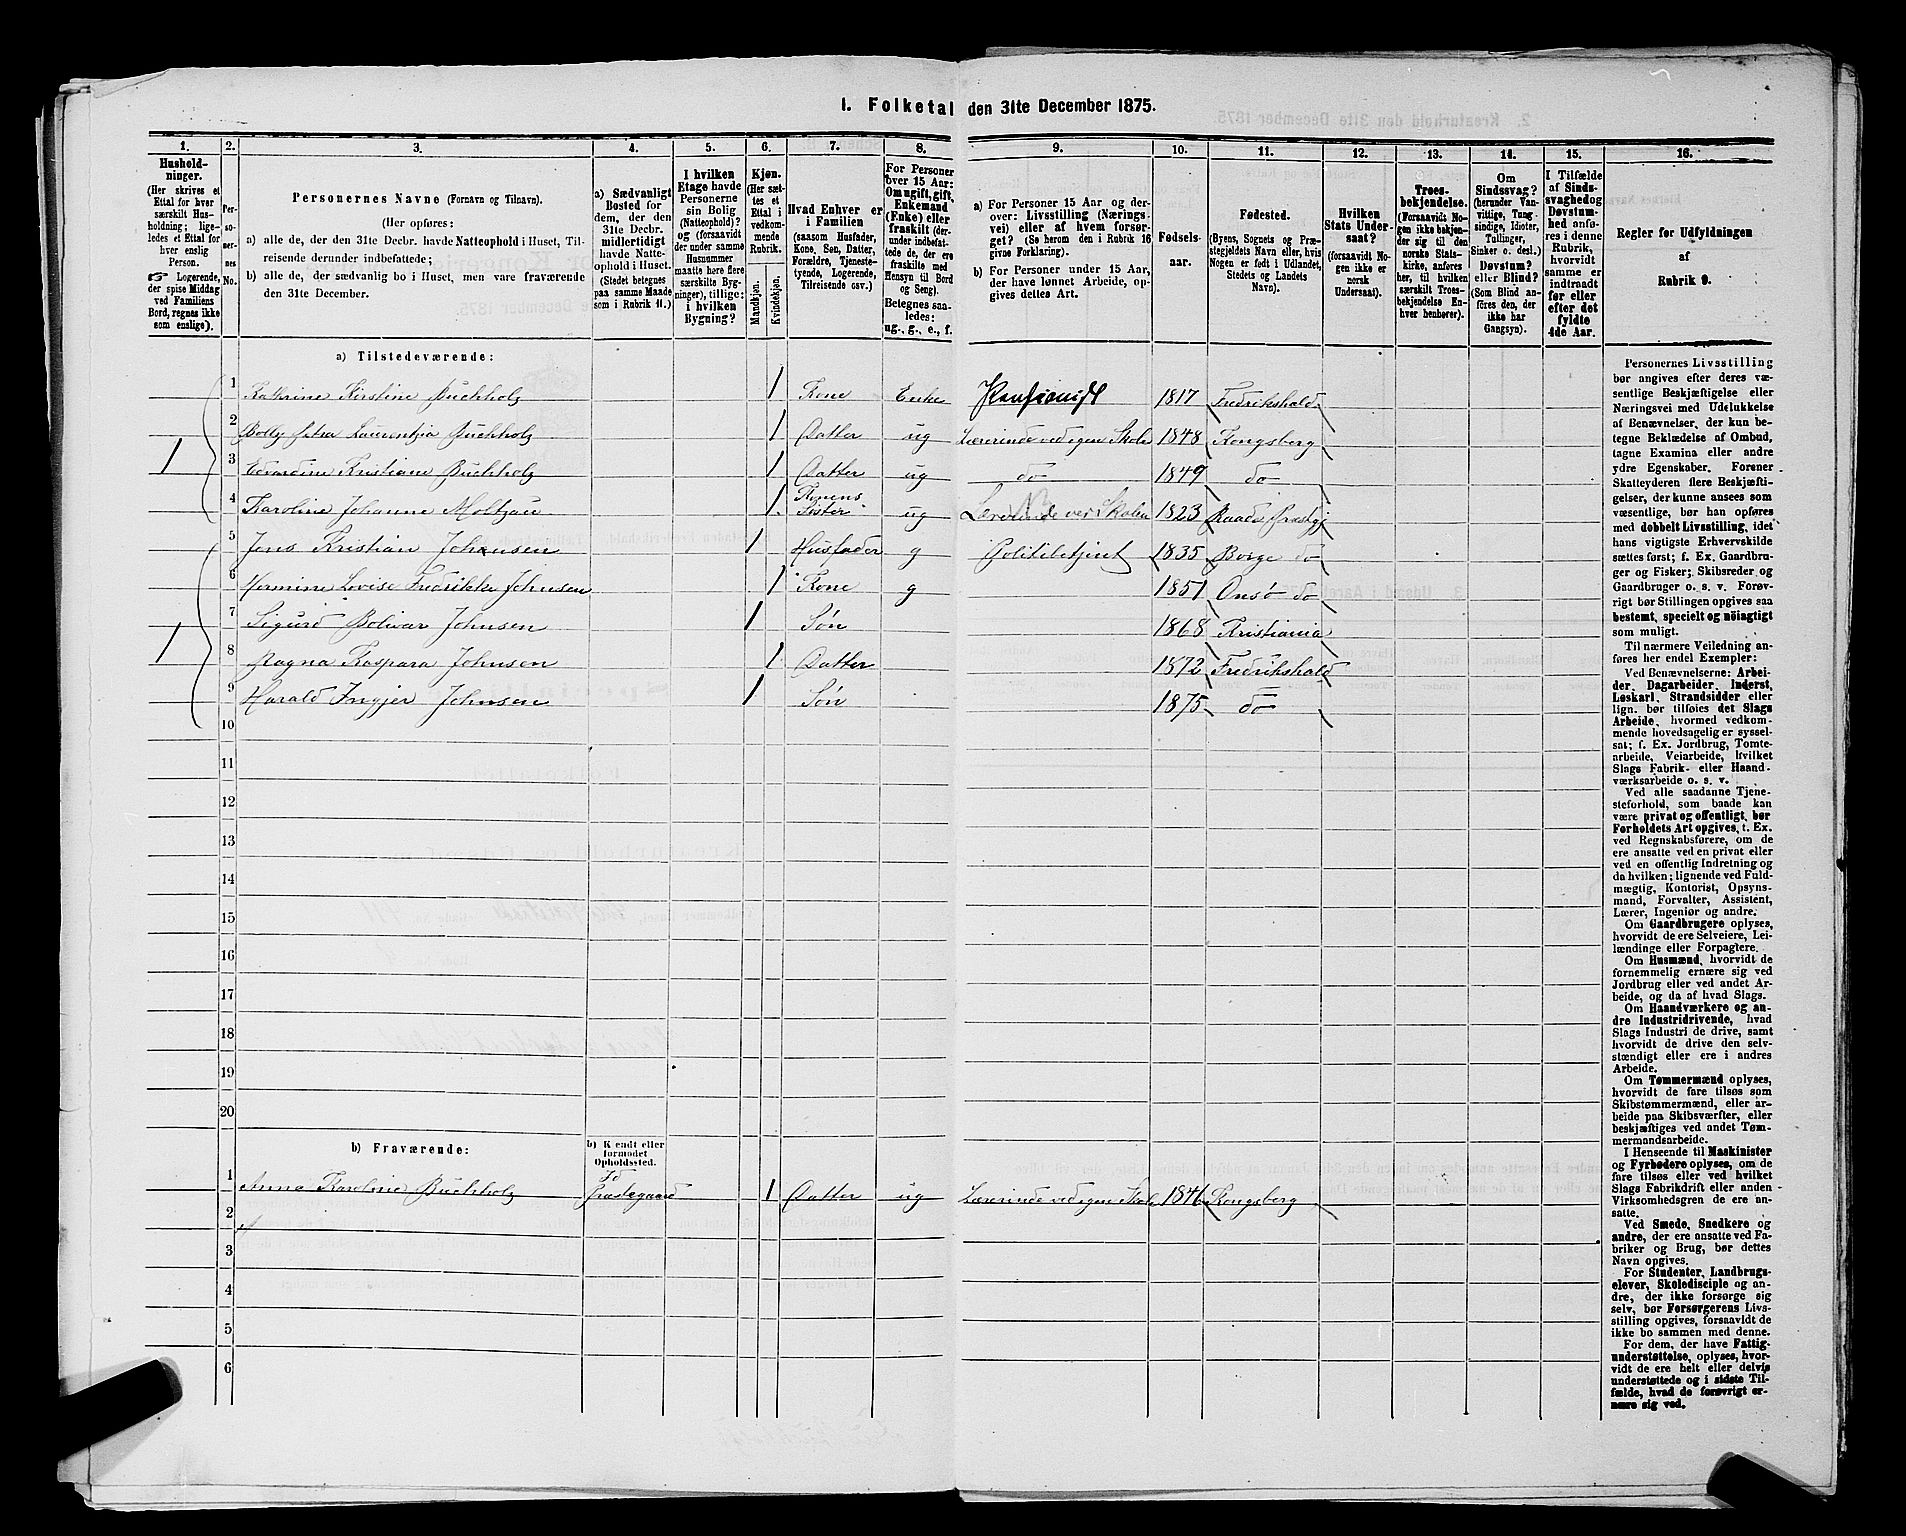 1. Folketal den 31te December 1875.
1.
2.
3.
4.
5.
6.
7.
8.
9.
10.
11.
12.
13.
14.
15.
16.
Hushold-
ninger.
(Her skrives et
Ettal for hver
særskilt Hus-
holdning; lige-
ledes et Ettal for
hver enslig
Person.
☞ Logerende,
der spise Middag
ved Familiens
Bord, regnes ikke
som enslige).
Per-
so-
ner-
nes
No.
Personernes Navne (Fornavn og Tilnavn).
(Her opføres:
a) alle de, der den 31te Decbr. havde Natteophold i Huset, Til-
reisende derunder indbefattede;
b) alle de, der sædvanlig bo i Huset, men vare fraværende
den 31te December.
a) Sædvanligt
Bosted for
dem, der den
31te Decbr.
midlertidigt
havde Natte-
ophold i Huset.
(Stedet betegnes
paa samme Maade
som i Rubrik 11.)
I hvilken
Etage havde
Personerne
sin Bolig
(Natteophold)?
og (forsaavidt
der under samme
Husnummer
maatte høre flere
særskilte Byg-
ninger), tillige:
i hvilken
Bygning?
Kjøn.
(Her sæt-
tes et
Ettal i
vedkom-
mende
Rubrik.
Mandkjøn.
Kvindekjøn.
Hvad Enhver er
i Familien
(saasom Husfader,
Kone, Søn, Datter,
Forældre, Tjeneste-
tyende, Logerende,
Tilreisende osv.)
For Personer
over 15 Aar:
Om ugift, gift,
Enkemand
(Enke) eller
fraskilt (der-
under indbefat-
tede de, der ere
fraskilte med
Hensyn til Bord
og Seng).
Betegnes saa-
ledes:
ug., g., e., f.
a) For Personer 15 Aar og der-
over: Livsstilling (Nærings-
vei) eller af hvem forsør-
get? (Se herom den i Rubrik 16
givne Forklaring).
b) For Personer under 15 Aar,
der have lønnet Arbeide, op-
gives dettes Art.
Fødsels-
aar.
Fødested.
(Byens, Sognets og Præ-
stegjeldets Navn eller, hvis
Nogen er født i Udlandet,
Stedets og Landets
Navn).
Hvilken
Stats Under-
saat?
(forsaavidt No-
gen ikke er
norsk
Undersaat).
Troes-
bekjendelse.
(Forsaavidt No-
gen ikke bekjen-
der sig til den
norske Stats-
kirke, anføres
her, til hvilken
særskilt Troes-
bekjendelse En-
hver henhører).
Om
Sindssvag?
eller Blind?
(herunder Van-
vittige, Tung-
sindige, Idioter,
Tullinger,
Sinker o. desl.)
Døvstum?
eller Blind?
(Som Blind an-
føres den, der
ikke har
Gangsyn).
I Tilfælde
af Sinds-
svaghed og
Døvstum-
hed anfø-
res i denne
Rubrik,
hvorvidt
samme er
indtraadt
før eller
efter det
fyldte
4de Aar.
Regler for Udfyldningen
af
Rubrik 9.
a) Tilstedeværende:
1 Kathrine Kirstine Buchholz 1 Kone Enke Pensionist 1817 Fredrikshald
2 Bolly Petra Laurentzia Buchholz 1 Datter ug Lærerinde ved egen Skole 1848 Kongsberg
1 3 Edvardine Kristiane Buchholz 1 Datter ug do 1849 do
4 Karoline Johanne Moltzau 1 Konens Søster ug Lærerinde ved Skolen 1823 Raade Præstgj
5 Jens Kristian Johansen 1 Husfader g Politibetjent 1835 Borge do
6 Hermine Lovise Fredrikke Johnsen 1 Kone g 1851 Onsø do
7 Sigurd Bolivar Johnsen 1 Søn 1868 Kristiania
1 8 Ragna Kaspara Johnsen 1 Datter 1872 Fredrikshald
9 Harald Ingjer Johnsen 1 Søn 1875 do
10
11
12
13
14
15
16
17
18
19
20
b) Fraværende:
b) Kjendt eller
formodet
Opholdssted.
1 Anna Karoline Buchholz Id Præstegaard 1 Datter ug Lærerinde ved egen Skole 1846 Kongsberg
2
3
4
5
6
Personernes Livsstilling
bør angives efter deres væ-
sentlige Beskjæftigelse eller
Næringsvei med Udelukkelse
af Benævnelser, der kun be-
tegne Beklædelse af Ombud,
tagne Examina eller andre
ydre Egenskaber. Forener
Skatteyderen flere Beskjæfti-
gelser, der kunne ansees som
væsentlige, bør han opføres
med dobbelt Livsstilling, idet
hans vigtigste Erhvervskilde
sættes først; f. Ex. Gaardbru-
ger og Fisker; Skibsreder og
Gaardbruger o. s. v. Forøv-
rigt bør Stillingen opgives saa
bestemt, specielt og nöiagtigt
som muligt.
Til nærmere Veiledning an-
føres her endel Exempler:
Ved Benævnelserne: Arbei-
der, Dagarbeider, Inderst,
Løskarl, Strandsidder eller
lign. bør tilføies det Slags
Arbeide, hvormed vedkom-
mende hovedsagelig er syssel-
sat; f. Ex. Jordbrug, Tomte-
arbeide, Veiarbeide, hvilket
Slags Fabrik- eller Haand-
værksarbeide o. s. v.
Ved alle saadanne Tjene-
steforhold, som baade kan
være privat og offentligt, bør
Forholdets Art opgives, t. Ex.
ved Regnskabsførere, om de
ere ansatte ved en privat eller
ved en offentlig Indretning og
da hvilken; lignende ved Fuld-
mægtig, Kontorist, Opsyns-
mand, Forvalter, Assistent,
Lærer, Ingeniør og andre.
Om Gaardbrugere oplyses,
hvorvidt de ere Selveiere, Lei-
lændinge eller Forpagtere.
Om Husmænd, hvorvidt de
fornemmelig ernære sig ved
Jordbrug eller ved andet Ar-
beide, og da af hvad Slags.
Om Haandværkere og an-
dre Industridrivende, hvad
Slags Industri de drive, samt
hvorvidt de drive den selv-
stændigt eller ere i andres
Arbeide.
Om Tømmermænd oplyses,
hvorvidt de fare tilsøs som
Skibstømmermænd, eller ar-
beide paa Skibsværfter, eller
beskjæftiges ved andet Tøm-
mermandsarbeide.
I Henseende til Maskinister
og Fyrbødere oplyses, om de
fare tilsøs eller ved hvilket
Slags Fabrikdrift eller anden
Virksomhedsgren de ere an-
satte.
Ved Smede, Snedkere og
andre, der ere ansatte ved Fa-
briker og Brug, bør dettes
Navn opgives.
For Studenter, Landbrugs-
elever, Skoledisciple og an-
dre, der ikke forsørge sig
selv, bør Forsørgerens Livs-
stilling opgives, forsaavidt de
ikke bo sammen med denne.
For dem, der have Fattig-
understøttelse, oplyses, hvor-
vidt de ere helt eller delvis
understøttede og i sidste Til-
fælde, hvad de forøvrigt er-
nære sig ved.